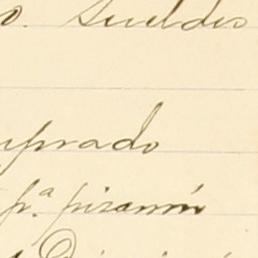 o. Sueldos
uprado
pª pizarrón